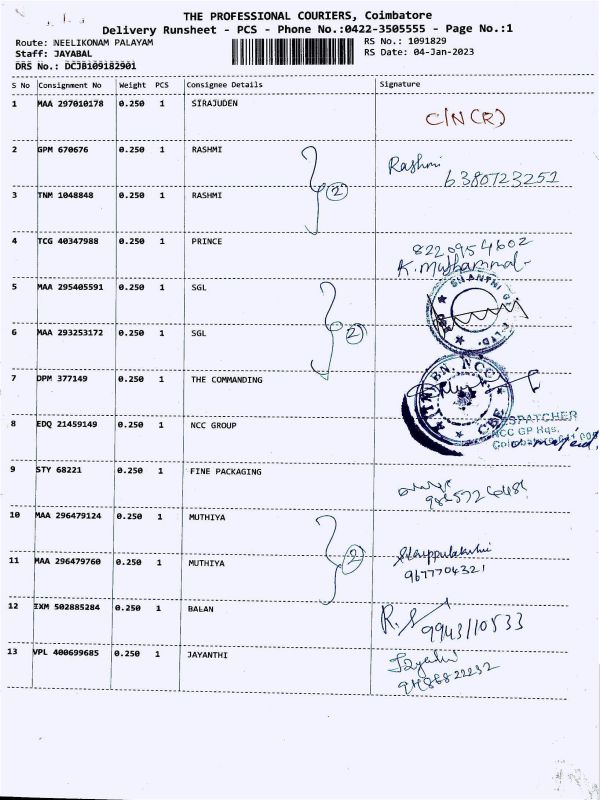 THE PROFESSIONAL COURIERS, Coimbatore
Delivery Runsheet - PCS - Phone No.:0422-3505555 - Page No.:1
Route: NEELIKONAM PALAYAM RS No.: 1091829
Staff: JAYABAL RS Date: 04-Jan-2023
DRS No.: DCJB109182901
S No Consignment No Weight PCS Consignee Details Signature
1 MAA 297010178 0.250 1 SIRAJUDEN C/N(R)
2 GPM 670676 0.250 1 RASHMI Rashmi
6380723252
2
3 TNM 1048848 0.250 1 RASHMI
4 TCG 40347988 0.250 1 PRINCE 8220954602
K. Muthammal
5 MAA 295405591 0.250 1 SGL SHANTHI
LTD.
2
6 MAA 293253172 0.250 1 SGL
7 DPM 377149 0.250 1 THE COMMANDING BN. NCC
CBE
8 EDQ 21459149 0.250 1 NCC GROUP DESPATCHER
NCC GP Hqs.
Coimbatore
9 STY 68221 0.250 1 FINE PACKAGING
10 MAA 296479124 0.250 1 MUTHIYA
2
11 MAA 296479760 0.250 1 MUTHIYA 9677704321
12 IXM 502885284 0.250 1 BALAN R.S
9943110533
13 VPL 400699685 0.250 1 JAYANTHI